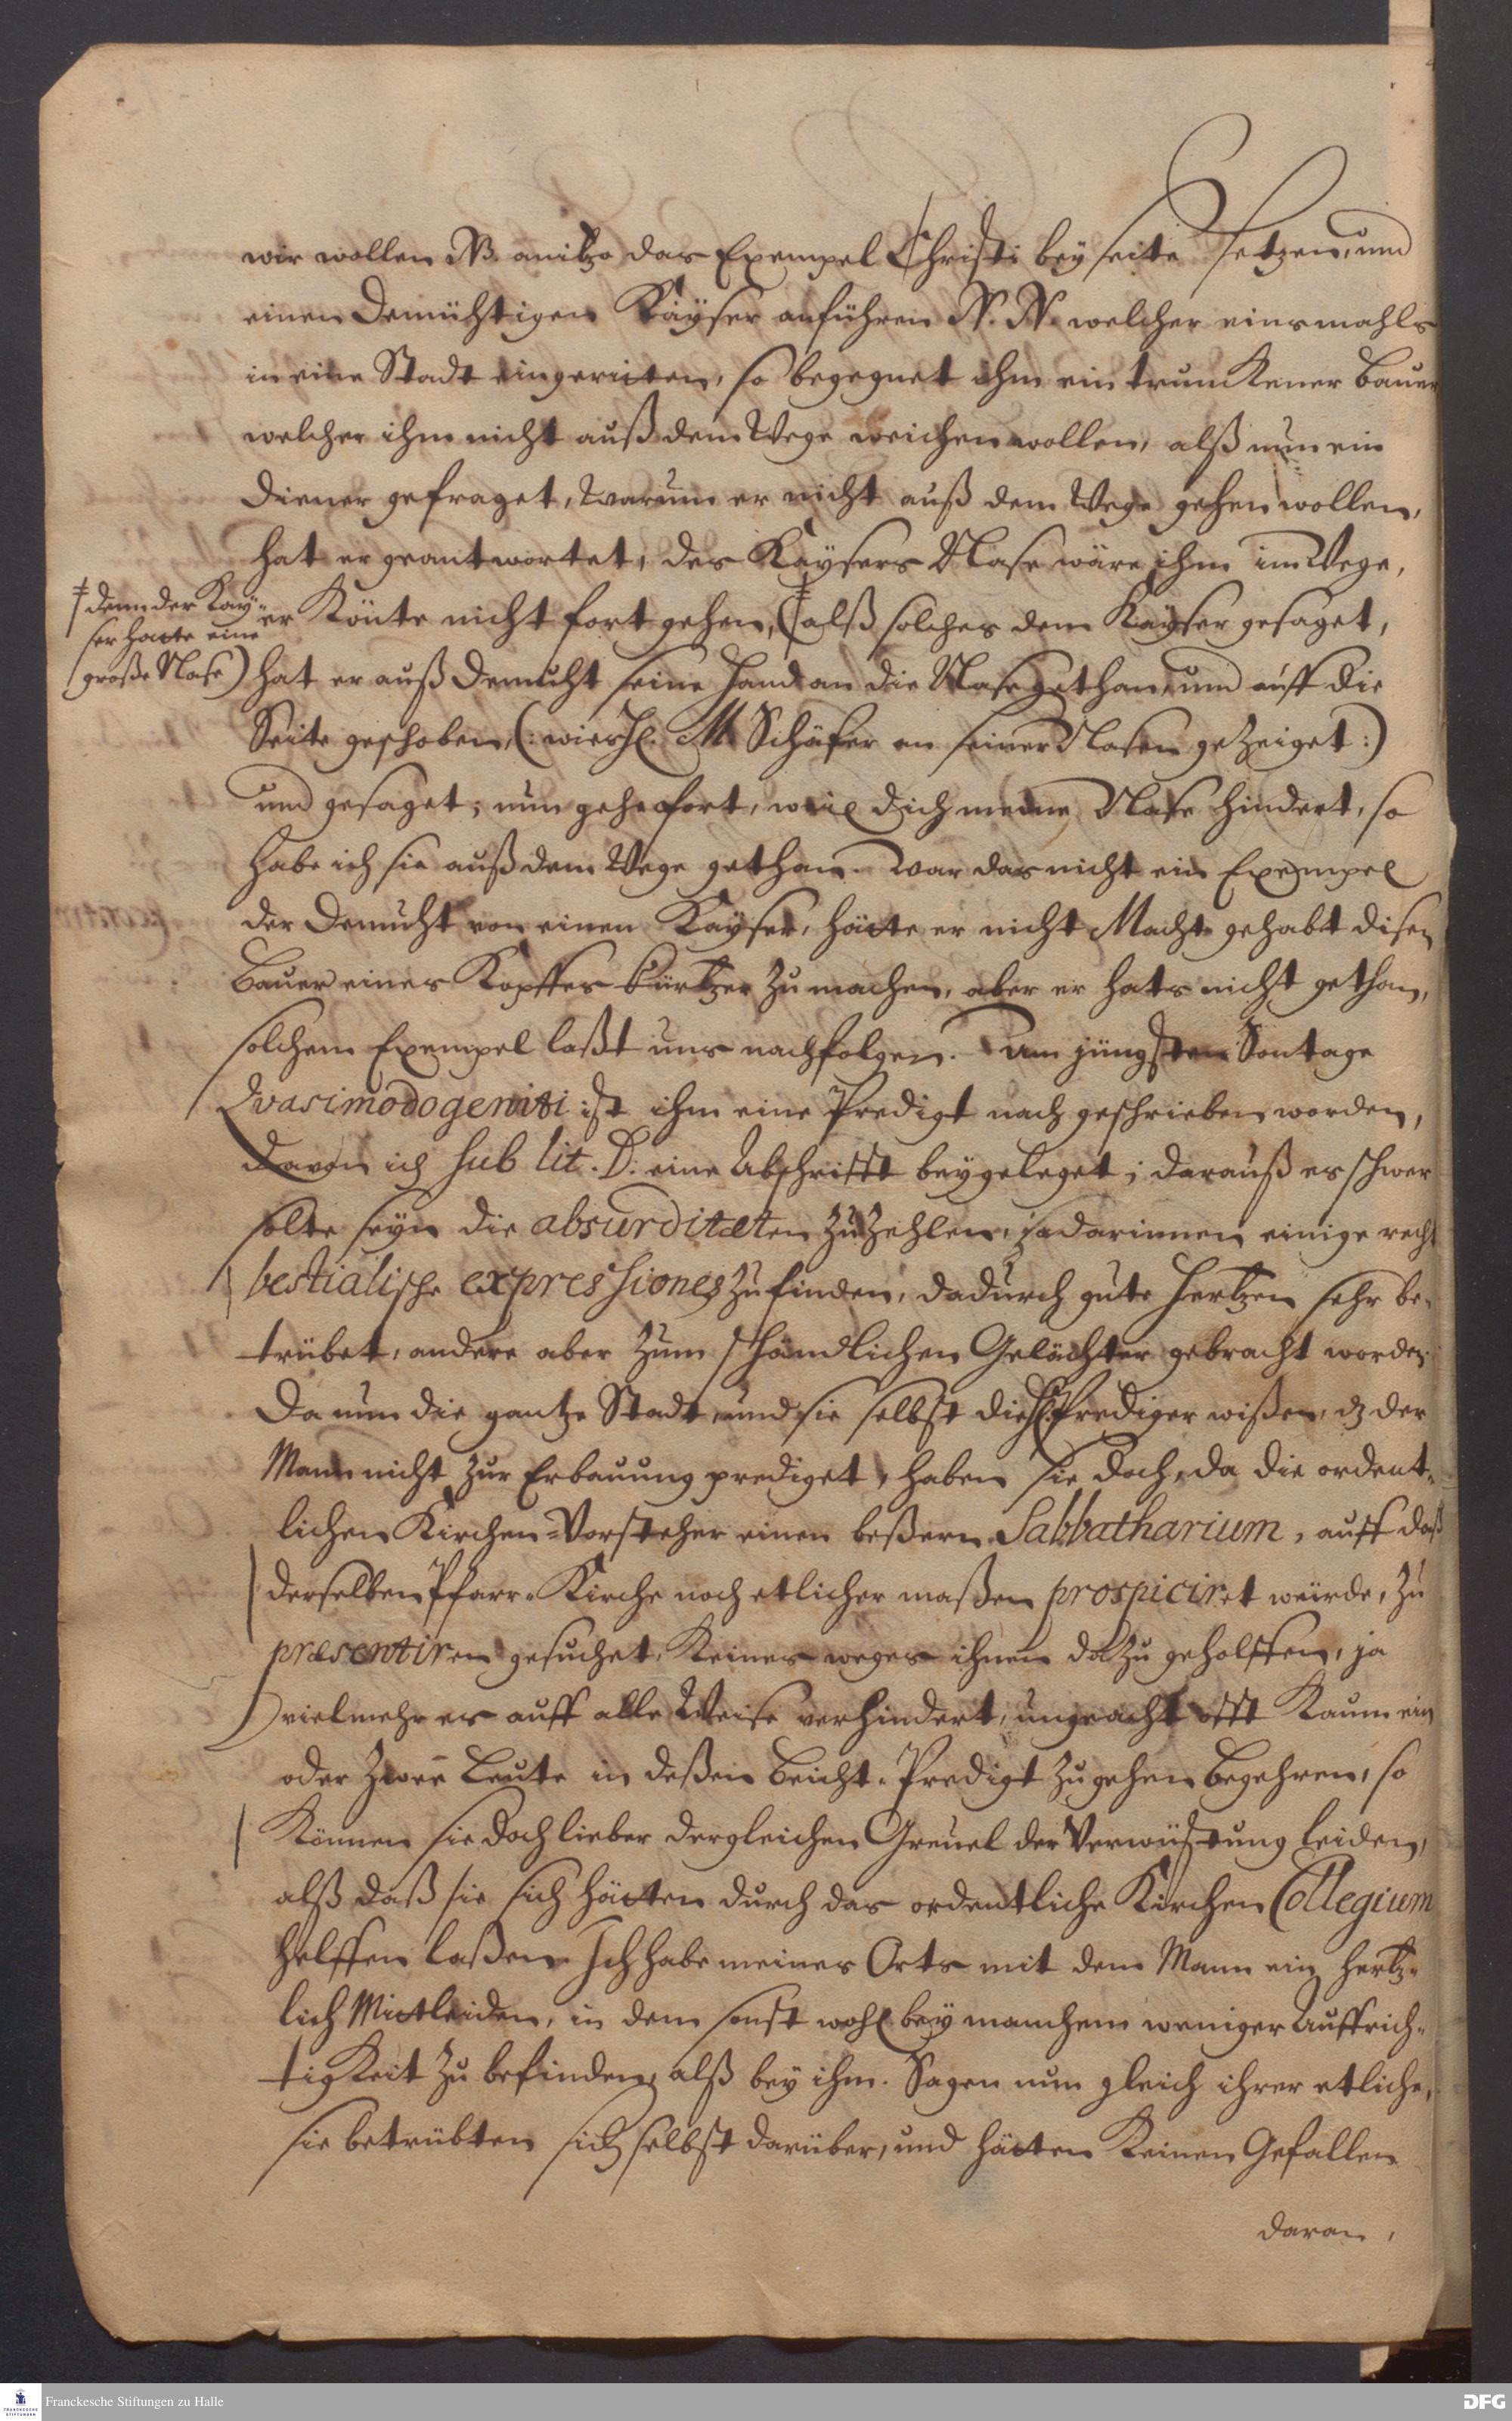 wir wollen NB. anitzo das Exempel Christi bey seite setzen, und
einen Demühtigen Käyser anführen N. N. welcher einsmahls
in eine Stadt eingeritten, so begegnet ihm ein trunckener Bauer
welcher ihm nicht auß dem Wege weichen wollen, alß nun ein
Diener gefraget, warum er nicht auß dem Wege gehen wollen,
hat er geantwortet, des Kaysers Nase wäre ihm im Wege,
er Könte nicht fort gehen, (‡ alß solches dem Kayser gesaget,
‡ denn der Kay-
ser hatte eine
große Nase)
hat er auß Demuht seine Hand an die Nase gethan, und auff die
Seite geschoben, (: wie H. M. Schäfer an seiner Nasen gezeiget :)
und gesaget; nun gehe fort, weil dich meine Nase hindert, so
habe ich sie auß dem Wege gethan. War das nicht ein Exempel
der Demuht von einen Kayser, hätte er nicht Macht gehabt disen
Bauer eines Kopffes kürtzer zu machen, aber er hats nicht gethan,
solchem Exempel laßt uns nachfolgen. Am jüngsten Sontage
Qvasimodogeniti ist ihm eine Predigt nach geschrieben worden,
davon ich sub lit. D. eine Abschrifft beygeleget; darauß es schwer
solte seyn die absurditæten zu zehlen, ja darinnen einige recht
bestialische expressiones zu finden, dadurch gute Hertzen sehr be-
trübet, andere aber zum schändlichen Gelächter gebracht worden.
Da nun die gantze Stadt, und sie selbst die H. Prediger wißen, dz der
Mann nicht zur Erbauung prediget, haben sie doch, da die ordent-
lichen Kirchen-Vorsteher einen beßern Sabbatharium, auff daß
derselben Pfarr-Kirche noch etlicher maßen prospiciret würde, zu
præsentiren gesuchet, Keines weges ihnen dazu geholffen, ja
vielmehr es auff alle Weise verhindert, ungeacht offt Kaum ein
oder zwee Leute in deßen Beicht-Predigt zu gehen begehren, so
Können sie doch lieber dergleichen Greuel der Verwüstung leiden,
alß daß sie sich hätten durch das ordentliche Kirchen Collegium
helffen laßen. Ich habe meines Orts mit dem Mann ein hertz-
lich Mittleiden, in dem sonst wohl bey manchem weniger Auffrich-
tigKeit zu befinden, alß bey ihm. Sagen nun gleich ihrer etliche,
sie betrübten sich selbst darüber, und hätten Keinen Gefallen
daran,
Franckesche Stiftungen zu Halle
DFG